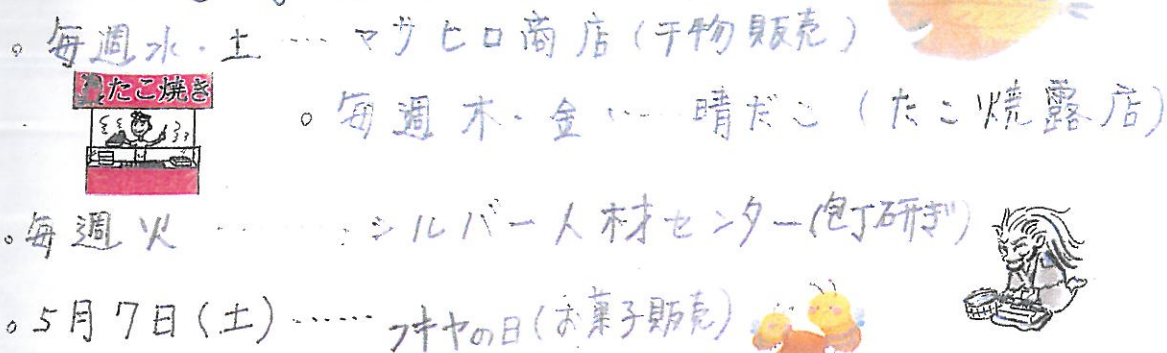 。毎週水・土 …… マサヒロ商店(干物販売)
たこ焼き
。毎週木・金 …… 晴だこ(たこ焼露店)
。毎週火 …… シルバー人材センター(包丁研ぎ)
。5月7日(土) …… フキヤの日(お菓子販売)